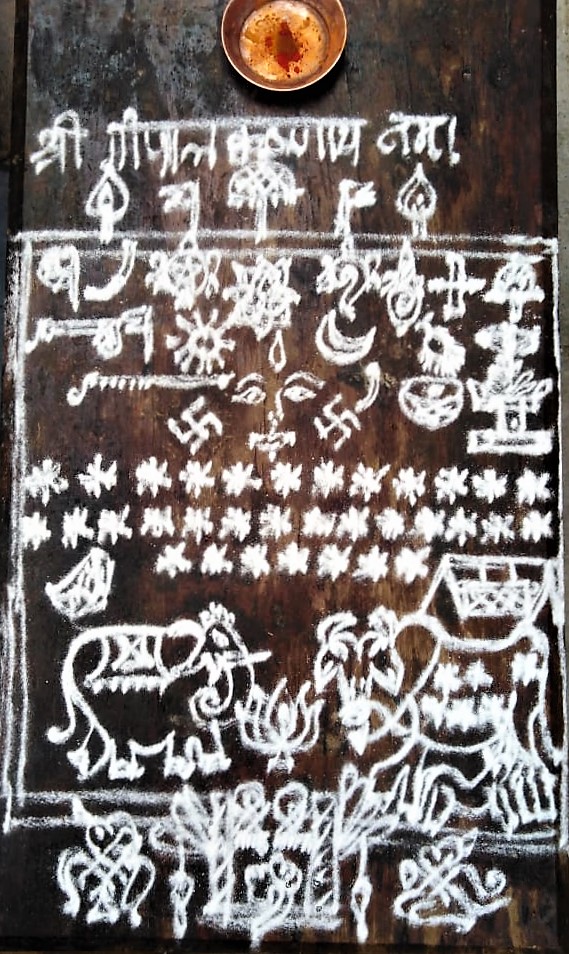 श्री गोपाल कृष्णाय नमः